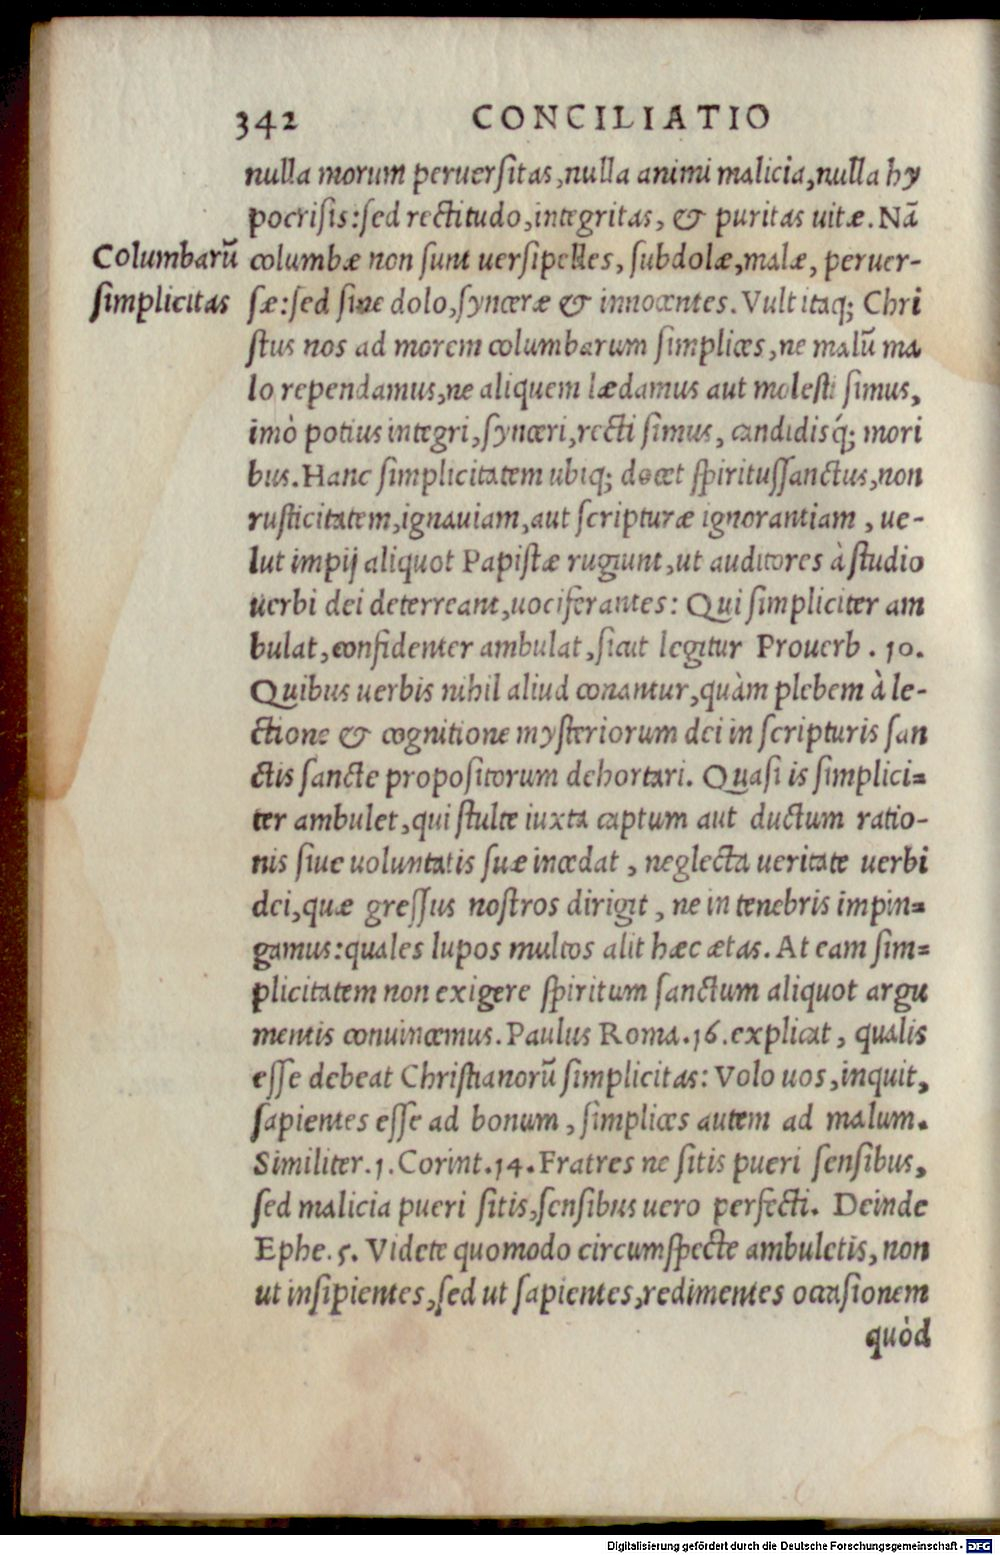 342 CONCILIATIO
nulla morum peruersitas, nulla animi malicia, nulla hy
pocrisis: sed rectitudo, integritas, & puritas uitæ. Nā
Columbarū
simplicitas
columbæ non sunt uersipelles, subdolæ, malæ, peruer-
sæ: sed sine dolo, synceræ & innocentes. Vult itaq; Chri
stus nos ad morem columbarum simplices, ne malū ma
lo rependamus, ne aliquem lædamus aut molesti simus,
imò potius integri, synceri, recti simus, candidisq́; mori
bus. Hanc simplicitatem ubiq; docet spiritussanctus, non
rusticitatem, ignauiam, aut scripturæ ignorantiam, ue-
lut impij aliquot Papistæ rugiunt, ut auditores à studio
uerbi dei deterreant, uociferantes: Qui simpliciter am
bulat, confidenter ambulat, sicut legitur Prouerb. 10.
Quibus uerbis nihil aliud conantur, quàm plebem à le-
ctione & cognitione mysteriorum dei in scripturis san
ctis sancte propositorum dehortari. Quasi is simplici=
ter ambulet, qui stulte iuxta captum aut ductum ratio-
nis siue uoluntatis suæ incedat, neglecta ueritate uerbi
dei, quæ gressus nostros dirigit, ne in tenebris impin=
gamus: quales lupos multos alit hæc ætas. At eam sim=
plicitatem non exigere spiritum sanctum aliquot argu
mentis conuincemus. Paulus Roma. 16. explicat, qualis
esse debeat Christianorū simplicitas: Volo uos, inquit,
sapientes esse ad bonum, simplices autem ad malum.
Similiter. 1. Corint. 14. Fratres ne sitis pueri sensibus,
sed malicia pueri sitis, sensibus uero perfecti. Deinde
Ephe. 5. Videte quomodo circumspecte ambuletis, non
ut insipientes, sed ut sapientes, redimentes occasionem
quòd
Digitalisierung gefördert durch die Deutsche Forschungsgemeinschaft - DFG